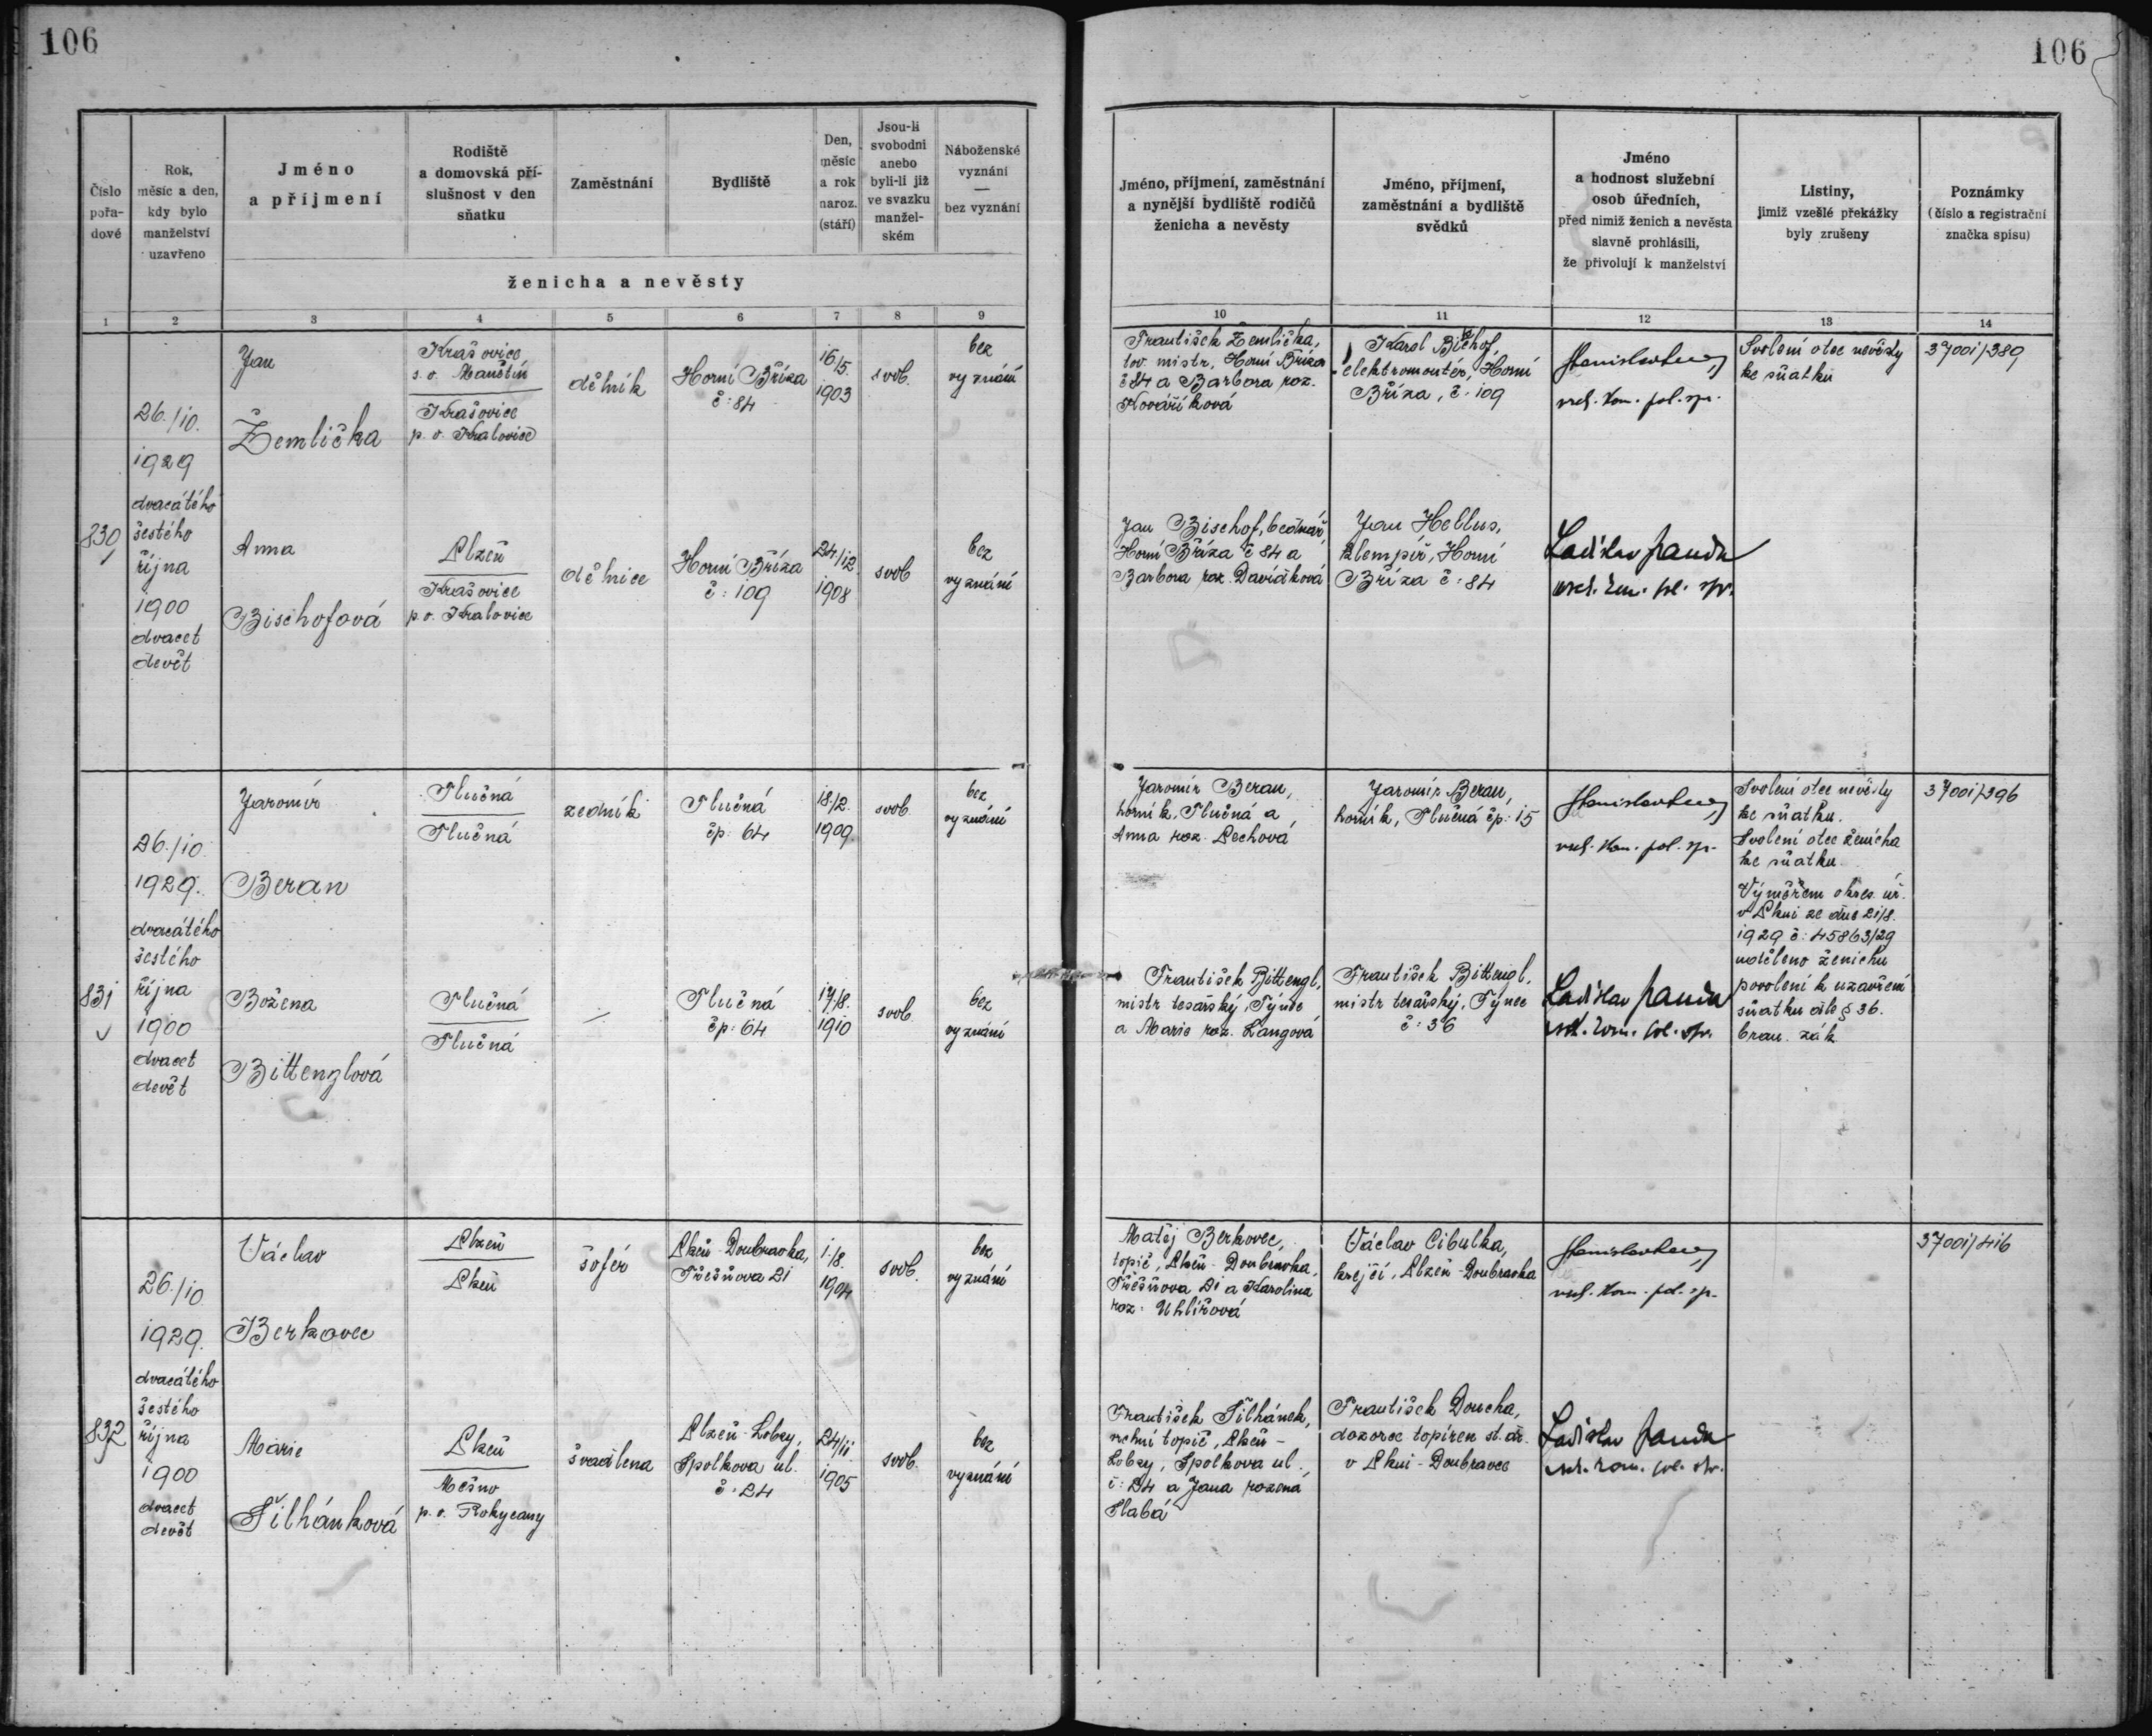 106
106
Číslo pořa- dové
Rok, měsíc a den, kdy bylo manželství uzavřeno
Jméno a příjmení
Rodiště a domovská pří- slušnost v den sňatku
Zaměstnání
Bydliště
Den, měsíc a rok naroz. (stáří)
Jsou-li svobodni anebo byli-li již ve svazku manžel- ském
Náboženské vyznání — bez vyznání
ženicha a nevěsty
Jméno, příjmení, zaměstnání a nynější bydliště rodičů ženicha a nevěsty
Jméno, příjmení, zaměstnání a bydliště svědků
Jméno a hodnost služební osob úředních, před nimiž ženich a nevěsta slavně prohlásili, že přivolují k manželství
Listiny, jimiž vzešlé překážky byly zrušeny
Poznámky (číslo a registrační značka spisu)
1 2 3 4 5 6 7 8 9
10 11 12 13 14
830
26./10.
1929
dvacátého
šestého
října
1900
dvacet
devět
Jan
Žemlička
Krašovice
s. o. Manětín
Krašovice
p. o. Kralovice
dělník
Horní Bříza
č: 84
16/5.
1903
svob.
bez
vyznání
František Žemlička,
tov. mistr, Horní Bříza
č 84 a Barbora roz.
Kovaříková
Karel Bischof,
elektromontér, Horní
Bříza, č. 109
vrch. kom. pol. spr.
Svolení otce nevěsty
ke sňatku
37001/389
Anna
Bischofová
Plzeň
Krašovice
p. o. Kralovice
dělnice
Horní Bříza
č: 109
24/12.
1908
svob
bez
vyznání
Jan Bischof, bednář
Horní Bříza č 84 a
Barbora roz. Davídková
Jan Hellus,
klempíř, Horní
Bříza č: 84
Ladislav Janda
vrch. kom. pol. spr.
831
26./10.
1929.
dvacátého
šestého
října
1900
dvacet
devět
Jaromír
Beran
Tlučná
Tlučná
zedník
Tlučná
čp: 64
18./2.
1909.
svob.
bez
vyznání
Jaromír Beran,
horník, Tlučná a
Anna roz. Pechová
Jaromír Beran,
horník, Tlučná čp: 15
vrch. kom. pol. spr.
Svolení otce nevěsty
ke sňatku.
Svolení otce ženicha
ke sňatku.
Výměřem okres. úř.
v Plzni ze dne 21/8.
1929 č: 45863/29
uděleno ženichu
povolení k uzavření
sňatku dle § 36.
bran. zák.
37001/396
Božena
Bittenglová
Tlučná
Tlučná
Tlučná
čp: 64
17./8.
1910
svob.
bez
vyznání
František Bittengl,
mistr tesařský, Týnec
a Marie roz. Langová
František Bittengl,
mistr tesařský, Týnec
č: 36
Ladislav Janda
vrch. kom. pol. spr.
832
26./10.
1929.
dvacátého
šestého
října
1900
dvacet
devět
Václav
Berkovec
Plzeň
Plzeň
šofér
Plzeň-Doubravka,
Třešňova 21
1./8.
1904
svob.
bez
vyznání
Matěj Berkovec,
topič, Plzeň-Doubravka,
Třešňova 21 a Karolina
roz. Uhlířová
Václav Cibulka,
krejčí, Plzeň-Doubravka
vrch. kom. pol. spr.
37001/416
Marie
Šilhánková
Plzeň
Mešno
p. o. Rokycany
švadlena
Plzeň-Lobzy,
Spolkova ul.
č: 24
24/11.
1905
svob.
bez
vyznání
František Šilhánek,
vrchní topič, Plzeň-
Lobzy, Spolkova ul.
č: 24 a Jana rozená
Slabá
František Doucha,
dozorce topíren st. dr.
v Plzni-Doubravce
Ladislav Janda
vrch. kom. pol. spr.